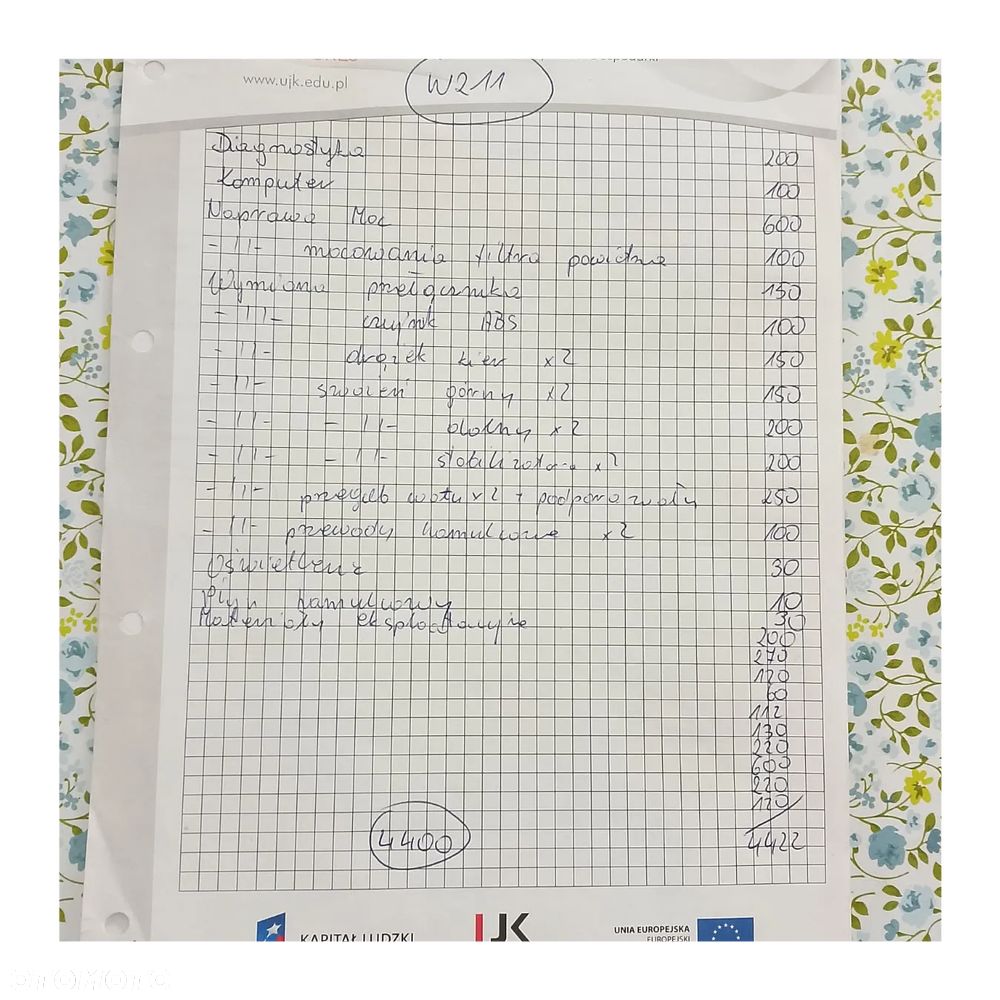 www.ujk.edu.pl
W211
Diagnostyka 200
Komputer 100
Naprawa Moc 600
-11- mocowania filtra powietrza 100
Wymiana przełącznika 150
-11- czujnik ABS 100
-11- drążek kier x2 150
-11- sworzeń górny x2 150
-11- -11- dolny x2 200
-11- -11- stabilizatora x2 200
-11- przegub wału x2 + podpora wału 250
-11- przewody hamulcowe x2 100
Oświetlenie 30
Płyn hamulcowy 10
Materiały eksploatacyjne 30
200
270
120
60
112
130
220
600
220
120
4400 4422
KAPITAŁ LUDZKI
UJK
UNIA EUROPEJSKA
EUROPEJSKI
OTOMOTO